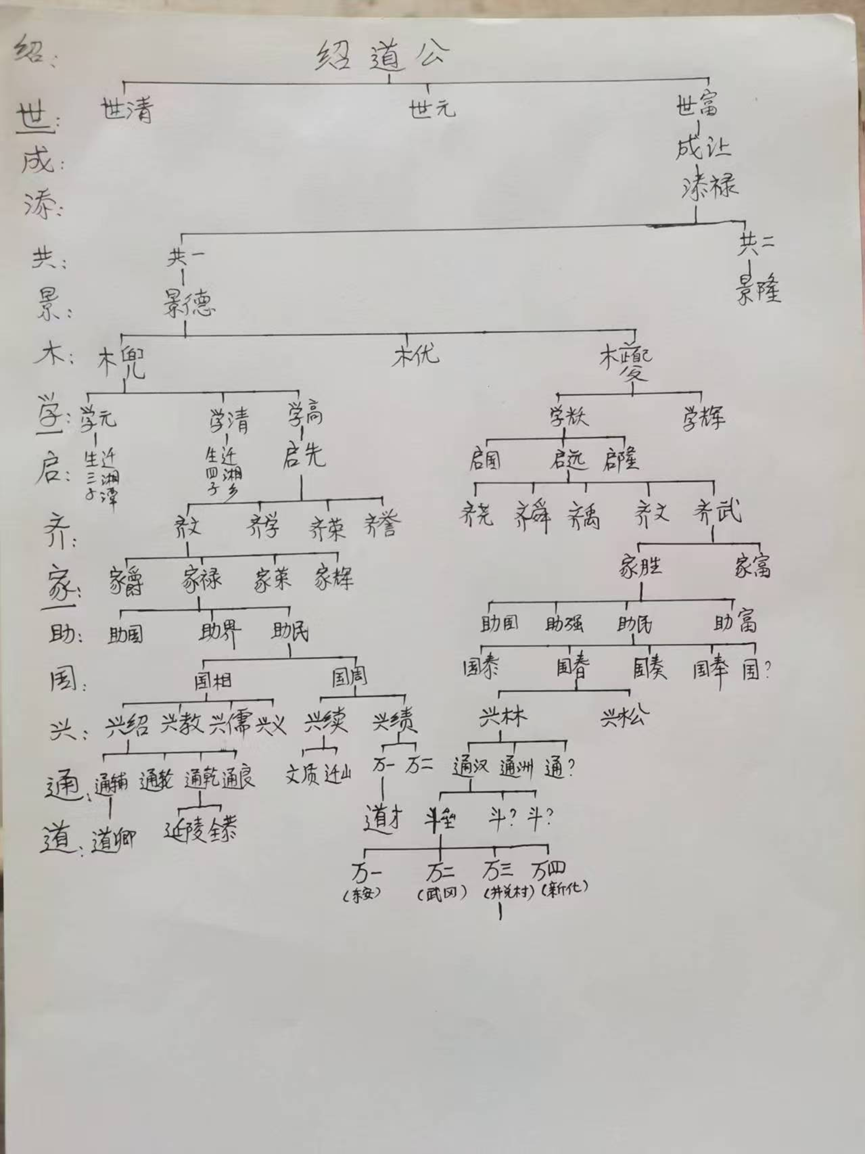 绍： 绍道公
世： 世清 世元 世富
成： 成让
添： 添禄
共： 共一 共二
景： 景德 景隆
木： 木兜 木优 木
学： 学元 学清 学高 学妖 学辉
启： 生三子 迁湘潭 生四子 迁湘乡 启先 启国 启远 启隆
齐： 齐文 齐学 齐荣 齐誉 齐尧 齐舜 齐禹 齐文 齐武
家： 家爵 家禄 家荣 家辉 家胜 家富
助： 助国 助界 助民 助国 助强 助民 助富
国： 国相 国周 国泰 国春 国奏 国奉 国？
兴： 兴绍 兴教 兴儒 兴义 兴续 兴绩 兴林 兴松
通： 通辅 通轮 通乾 通良 文质 迁山 万一 万二 通汉 通洲 通？
道： 道卿 延陵 全泰 道才 斗垒 斗？ 斗？
万一 万二 万三 万四
（东安） （武冈） （新化）